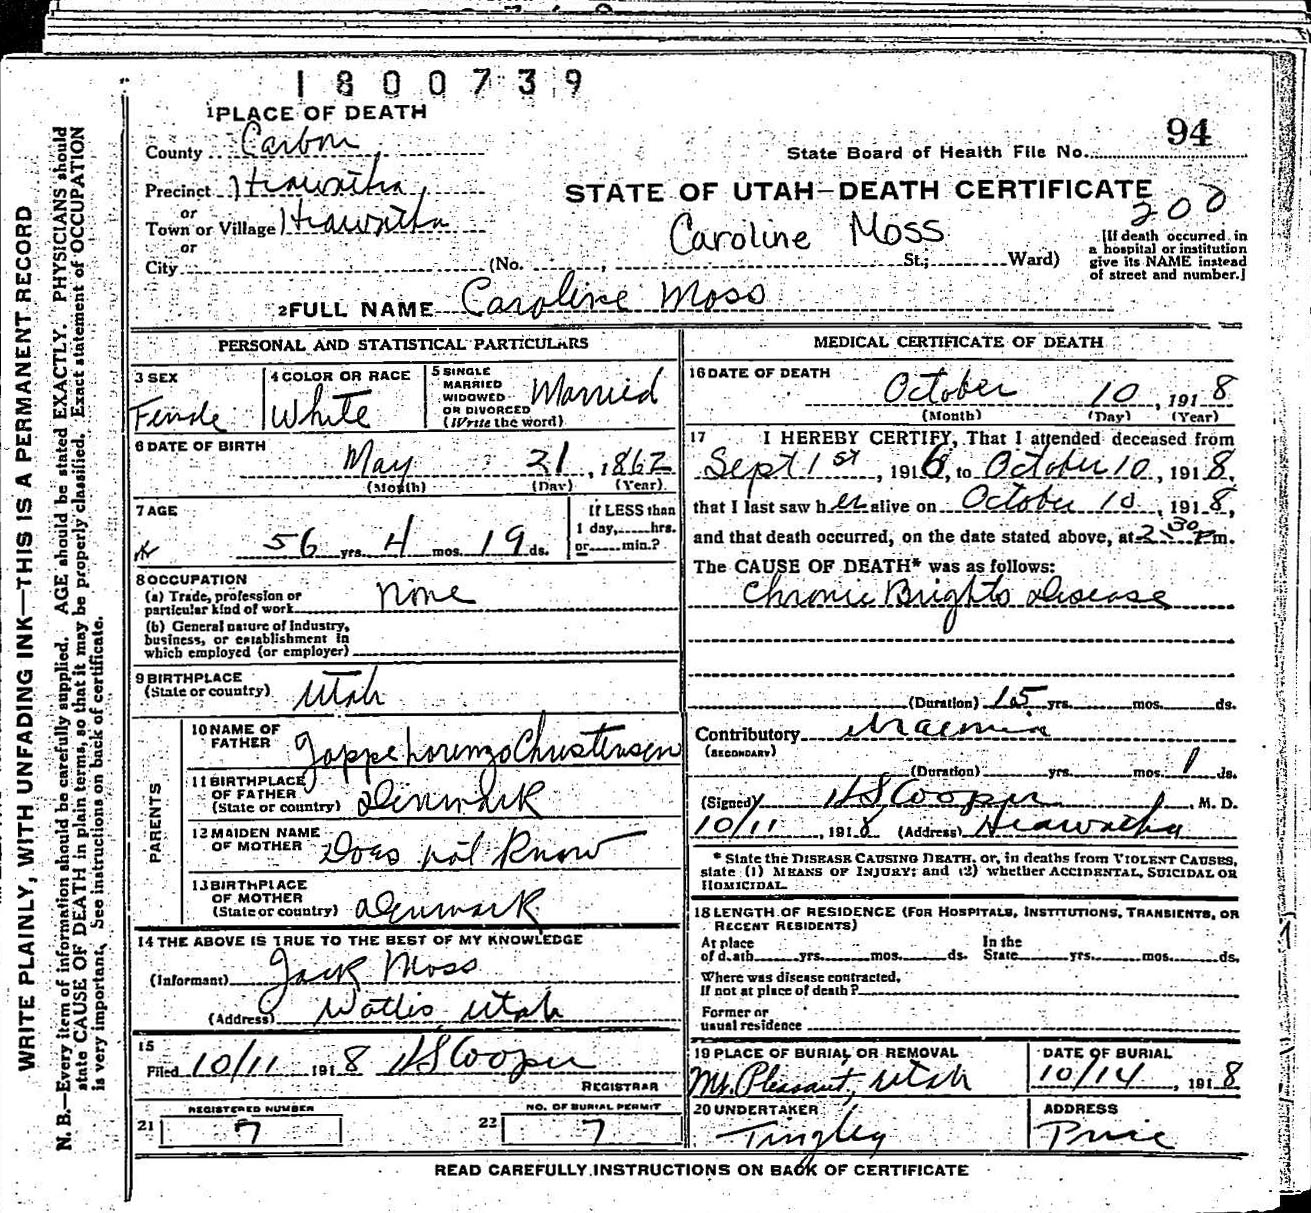 1800739
1 PLACE OF DEATH
94
County Carbon
State Board of Health File No.
Precinct Hiawatha
STATE OF UTAH—DEATH CERTIFICATE
or
200
Town or Village Hiawatha
Caroline Moss
or
City (No. , St.; Ward)
[If death occurred in
a hospital or institution
give its NAME instead
of street and number.]
2 FULL NAME Caroline Moss
PERSONAL AND STATISTICAL PARTICULARS
3 SEX
Female
4 COLOR OR RACE
White
5 SINGLE
MARRIED
WIDOWED
OR DIVORCED
(Write the word)
Married
6 DATE OF BIRTH
May 21, 1862
(Month) (Day) (Year)
7 AGE
56 yrs. 4 mos. 19 ds.
If LESS than
1 day, hrs.
or min.?
8 OCCUPATION
(a) Trade, profession or
particular kind of work None
(b) General nature of Industry,
business, or establishment in
which employed (or employer)
9 BIRTHPLACE
(State or country) Utah
PARENTS
10 NAME OF
FATHER Jappe Lorenzo Christensen
11 BIRTHPLACE
OF FATHER
(State or country) Denmark
12 MAIDEN NAME
OF MOTHER Does not Know
13 BIRTHPLACE
OF MOTHER
(State or country) Denmark
14 THE ABOVE IS TRUE TO THE BEST OF MY KNOWLEDGE
(Informant) Jack Moss
(Address) Wattis, Utah
15
Filed 10/11 1918 HS Cooper
REGISTRAR
REGISTERED NUMBER
21 7
NO. OF BURIAL PERMIT
22 7
MEDICAL CERTIFICATE OF DEATH
16 DATE OF DEATH
October 10, 1918
(Month) (Day) (Year)
17 I HEREBY CERTIFY, That I attended deceased from
Sept 1st, 1916, to October 10, 1918,
that I last saw her alive on October 10, 1918,
and that death occurred, on the date stated above, at 2 30 P m.
The CAUSE OF DEATH* was as follows:
Chronic Brights Disease
(Duration) 15 yrs. mos. ds.
Contributory Uraemia
(SECONDARY)
(Duration) yrs. mos. 1 ds.
(Signed) HS Cooper, M. D.
10/11, 1918 (Address) Hiawatha
* State the DISEASE CAUSING DEATH, or, in deaths from VIOLENT CAUSES,
state (1) MEANS OF INJURY; and (2) whether ACCIDENTAL, SUICIDAL OR
HOMICIDAL.
18 LENGTH OF RESIDENCE (FOR HOSPITALS, INSTITUTIONS, TRANSIENTS, OR
RECENT RESIDENTS)
At place In the
of death yrs. mos. ds. State yrs. mos. ds.
Where was disease contracted,
If not at place of death?
Former or
usual residence
19 PLACE OF BURIAL OR REMOVAL
Mt. Pleasant, Utah
DATE OF BURIAL
10/14, 1918
20 UNDERTAKER
Tingley
ADDRESS
Price
READ CAREFULLY INSTRUCTIONS ON BACK OF CERTIFICATE
WRITE PLAINLY, WITH UNFADING INK—THIS IS A PERMANENT RECORD
N. B.—Every item of information should be carefully supplied. AGE should be stated EXACTLY. PHYSICIANS should
state CAUSE OF DEATH in plain terms, so that it may be properly classified. Exact statement of OCCUPATION
is very important. See instructions on back of certificate.